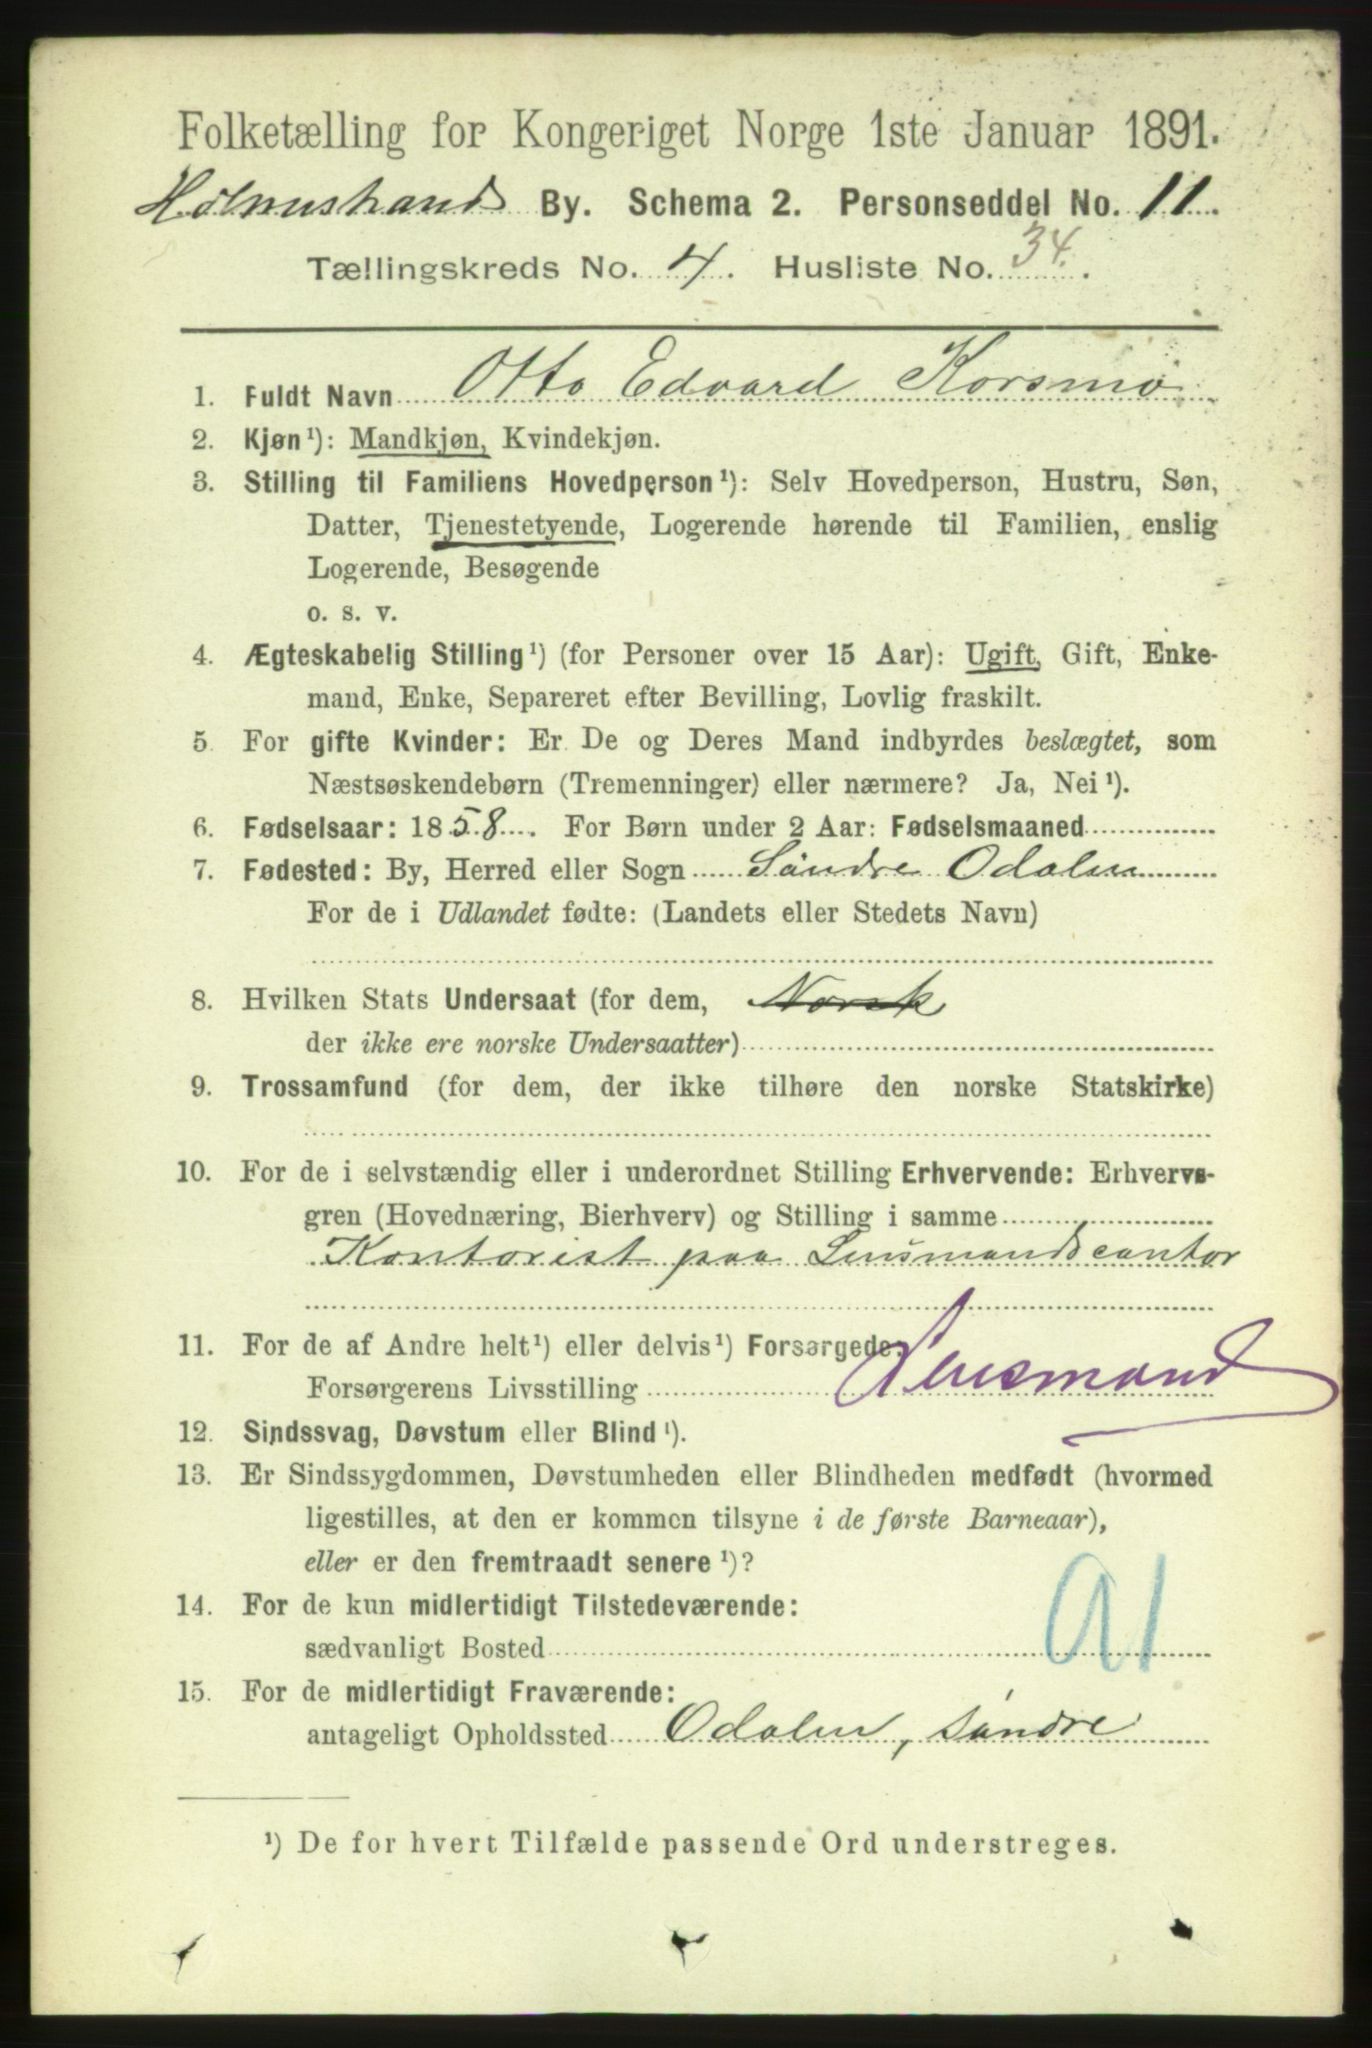 Folketælling for Kongeriget Norge 1ste Januar 1891.
Holmestrand By. Schema 2. Personseddel No. 11.
Tællingskreds No. 4. Husliste No. 34.
1. Fuldt Navn Otto Edvard Korsmo
2. Kjøn¹): Mandkjøn, Kvindekjøn.
3. Stilling til Familiens Hovedperson¹): Selv Hovedperson, Hustru, Søn,
Datter, Tjenestetyende, Logerende hørende til Familien, enslig
Logerende, Besøgende
o. s. v.
4. Ægteskabelig Stilling¹) (for Personer over 15 Aar): Ugift, Gift, Enke-
mand, Enke, Separeret efter Bevilling, Lovlig fraskilt.
5. For gifte Kvinder: Er De og Deres Mand indbyrdes beslægtet, som
Næstsøskendebørn (Tremenninger) eller nærmere? Ja, Nei¹).
6. Fødselsaar: 1858. For Børn under 2 Aar: Fødselsmaaned
7. Fødested: By, Herred eller Sogn Søndre Odalen
For de i Udlandet fødte: (Landets eller Stedets Navn)
8. Hvilken Stats Undersaat (for dem, Norsk
der ikke ere norske Undersaatter)
9. Trossamfund (for dem, der ikke tilhøre den norske Statskirke)
10. For de i selvstændig eller i underordnet Stilling Erhvervende: Erhvervs-
gren (Hovednæring, Bierhverv) og Stilling i samme
Kontorist paa Lensmandscontor
11. For de af Andre helt¹) eller delvis¹) Forsørgede:
Forsørgerens Livsstilling Lensmand
12. Sindssvag, Døvstum eller Blind¹).
13. Er Sindssygdommen, Døvstumheden eller Blindheden medfødt (hvormed
ligestilles, at den er kommen tilsyne i de første Barneaar),
eller er den fremtraadt senere¹)?
14. For de kun midlertidigt Tilstedeværende:
sædvanligt Bosted
91
15. For de midlertidigt Fraværende:
antageligt Opholdssted Odalen, søndre
¹) De for hvert Tilfælde passende Ord understreges.